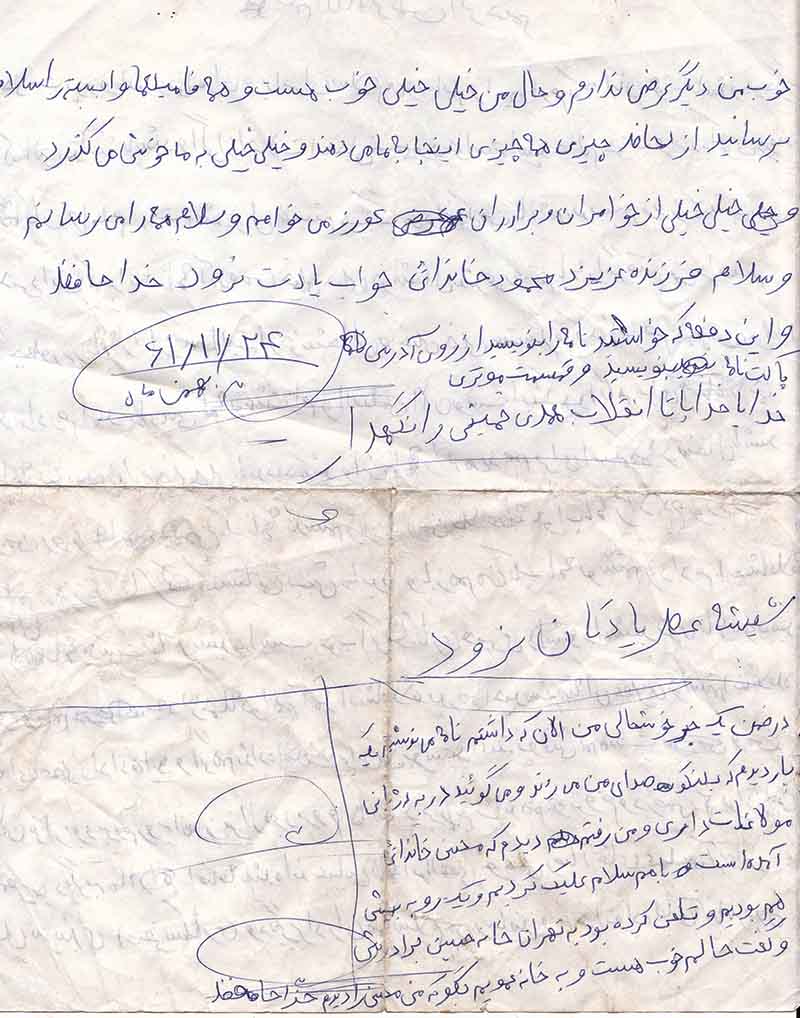 خوب من دیگر عرضی ندارم و حال من خیلی خیلی خوب هست و همه فامیلها وابسته را سلام
برسانید از لحاظ چیزی همه چیزی اینجا به ما می دهند و خیلی خیلی به ما خوش می گذرد
و خیلی خیلی از خواهران و برادران عذر می خواهم و سلام همه را می رسانم
و سلام فرزنده عزیزد محمود خاندائی جواب یادت نرود خدا حافظ
و این دفعه که خواستید نامه را بنویسید از روی آدرس
پاکت نامه بنویسید و قسمت موتری
۶۱/۱۱/۲۴
بهمن ماه
خدایا خدایا تا انقلاب مهدی خمینی را نگهدار
شیشه عطر یادتان نرود
درضمن یک خبر خوشحالی من الان که داشتم نامه می نوشتم یک
بار دیدم که بلندگو صدای من می زند و می گوئید در به دژبانی
ملاقات داری و من رفتم دیدم که محسن خاندائی
آمده است با هم سلام علیک کردیم و یک رو به
هم بودیم و تلفن کرده بود به تهران خانه حسین برادرش
و گفت حالم خوب هست و به خانه عمویم بگو که من محسن را دیدم خدا حافظ